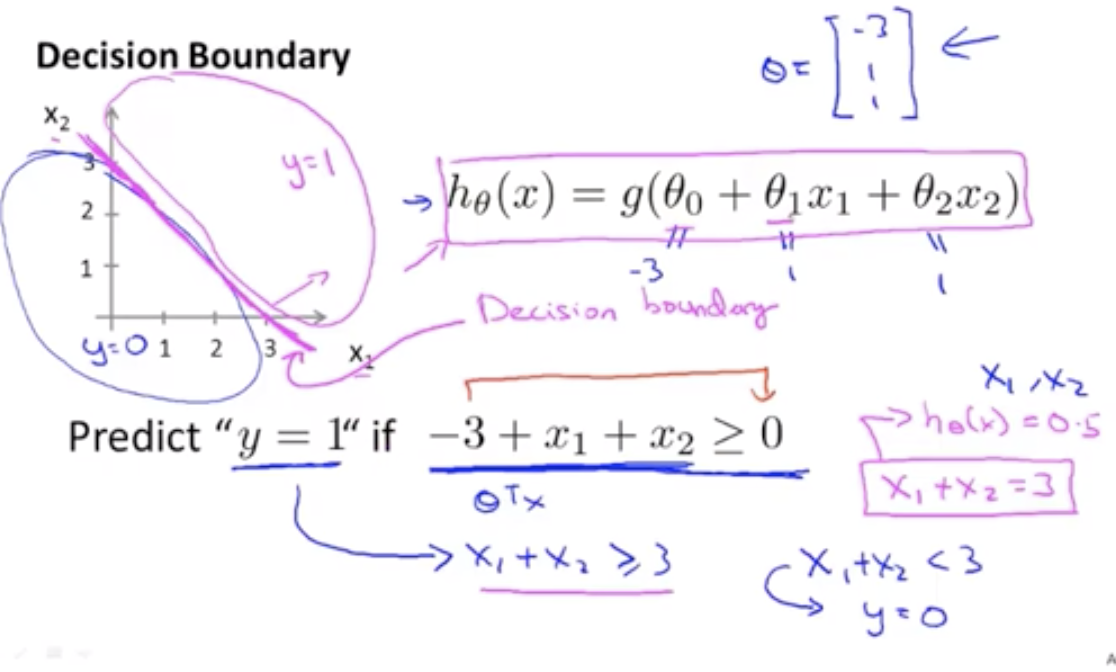 Decision Boundary
θ = [-3 1 1]
x₂
3
2
1
y=1
y=0
1 2 3
x₁
h_θ(x) = g(θ₀ + θ₁x₁ + θ₂x₂)
-3 1 1
Decision boundary
Predict “y = 1“ if −3 + x₁ + x₂ ≥ 0
θᵀx
x₁ + x₂ ≥ 3
x₁, x₂
h_θ(x) = 0.5
x₁ + x₂ = 3
x₁ + x₂ < 3
y = 0
A